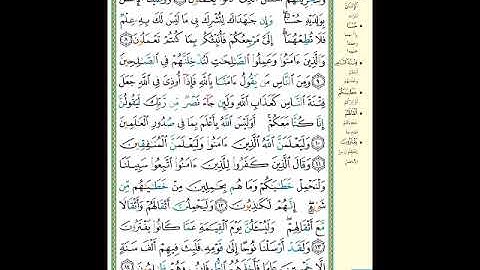 بِوَٰلِدَيْهِ حُسْنًا ۖ وَإِن جَٰهَدَاكَ لِتُشْرِكَ بِى مَا لَيْسَ لَكَ بِهِۦ عِلْمٌ
فَلَا تُطِعْهُمَآ ۚ إِلَىَّ مَرْجِعُكُمْ فَأُنَبِّئُكُم بِمَا كُنتُمْ تَعْمَلُونَ ٨
وَٱلَّذِينَ ءَامَنُوا۟ وَعَمِلُوا۟ ٱلصَّٰلِحَٰتِ لَنُدْخِلَنَّهُمْ فِى ٱلصَّٰلِحِينَ
٩ وَمِنَ ٱلنَّاسِ مَن يَقُولُ ءَامَنَّا بِٱللَّهِ فَإِذَآ أُوذِىَ فِى ٱللَّهِ جَعَلَ
فِتْنَةَ ٱلنَّاسِ كَعَذَابِ ٱللَّهِ وَلَئِن جَآءَ نَصْرٌ مِّن رَّبِّكَ لَيَقُولُنَّ
إِنَّا كُنَّا مَعَكُمْ ۚ أَوَلَيْسَ ٱللَّهُ بِأَعْلَمَ بِمَا فِى صُدُورِ ٱلْعَٰلَمِينَ
١٠ وَلَيَعْلَمَنَّ ٱللَّهُ ٱلَّذِينَ ءَامَنُوا۟ وَلَيَعْلَمَنَّ ٱلْمُنَٰفِقِينَ
١١ وَقَالَ ٱلَّذِينَ كَفَرُوا۟ لِلَّذِينَ ءَامَنُوا۟ ٱتَّبِعُوا۟ سَبِيلَنَا
وَلْنَحْمِلْ خَطَٰيَٰكُمْ وَمَا هُم بِحَٰمِلِينَ مِنْ خَطَٰيَٰهُم مِّن
شَىْءٍ ۖ إِنَّهُمْ لَكَٰذِبُونَ ١٢ وَلَيَحْمِلُنَّ أَثْقَالَهُمْ وَأَثْقَالًا
مَّعَ أَثْقَالِهِمْ ۖ وَلَيُسْـَٔلُنَّ يَوْمَ ٱلْقِيَٰمَةِ عَمَّا كَانُوا۟ يَفْتَرُونَ
١٣ وَلَقَدْ أَرْسَلْنَا نُوحًا إِلَىٰ قَوْمِهِۦ فَلَبِثَ فِيهِمْ أَلْفَ سَنَةٍ